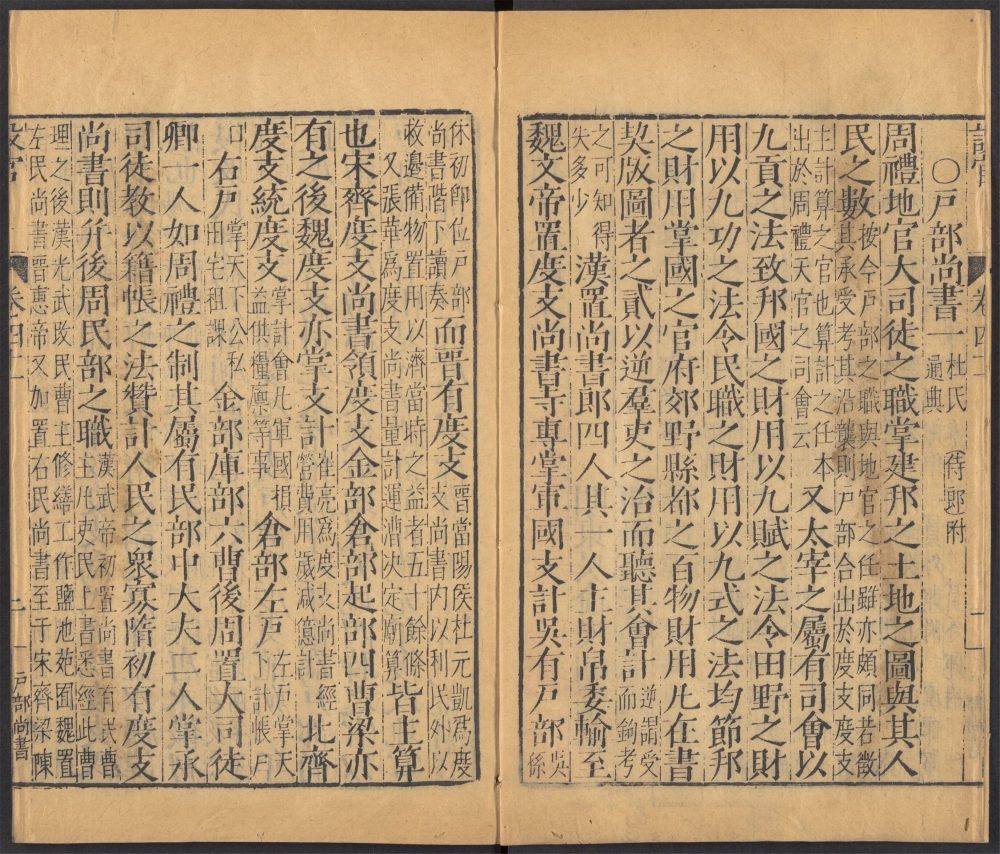 設官
卷四十一
一
○戶部尚書一 杜氏通典 侍郎附
周禮地官大司徒之職掌建邦之土地之圖與其人
民之數 按今戶部之職與地官之任雖亦頗同若徵
其承受考其沿襲則戶部合出於度支度支
主計算之官也算計之任本
出於周禮天官之司會云 又太宰之屬有司會以
九貢之法致邦國之財用以九賦之法令田野之財
用以九功之法令民職之財用以九式之法均節邦
之財用掌國之官府郊野縣都之百物財用凡在書
契版圖者之貳以逆羣吏之治而聽其會計 逆謂受
而鉤考
之可知得
失多少 漢置尚書郎四人其一人主財帛委輸至
魏文帝置度支尚書寺專掌軍國支計吳有戶部 吳
係
休初卽位戶部
尚書階下讀奏 而晋有度支 晋當陽侯杜元凱爲度
支尚書內以利民外以
救邊備物置用以濟當時之益者五十餘條
又張華爲度支尚書量計運漕決定廟算 皆主算
也宋齊度支尚書領度支金部倉部起部四曹梁亦
有之後魏度支亦掌支計 崔亮爲度支尚書經
營費用歲减億計 北齊
度支統度支 掌計會凡軍國損
益供糧廪等事 倉部左戶 左右掌天
下計帳戶
口 右戶 掌天下公私
田宅租課 金部庫部六曹後周置大司徒
卿一人如周禮之制其屬有民部中大夫二人掌承
司徒教以籍帳之法贊計人民之衆寡隋初有度支
尚書則幷後周民部之職 漢武帝初置尚書有民曹
主凡吏民上書悉經此曹
理之後漢光武改民曹主修繕工作鹽池苑囿魏置
左民尚書晋惠帝又加置右民尚書至于宋齊梁陳
設官
卷四十一
一
戶部尚書